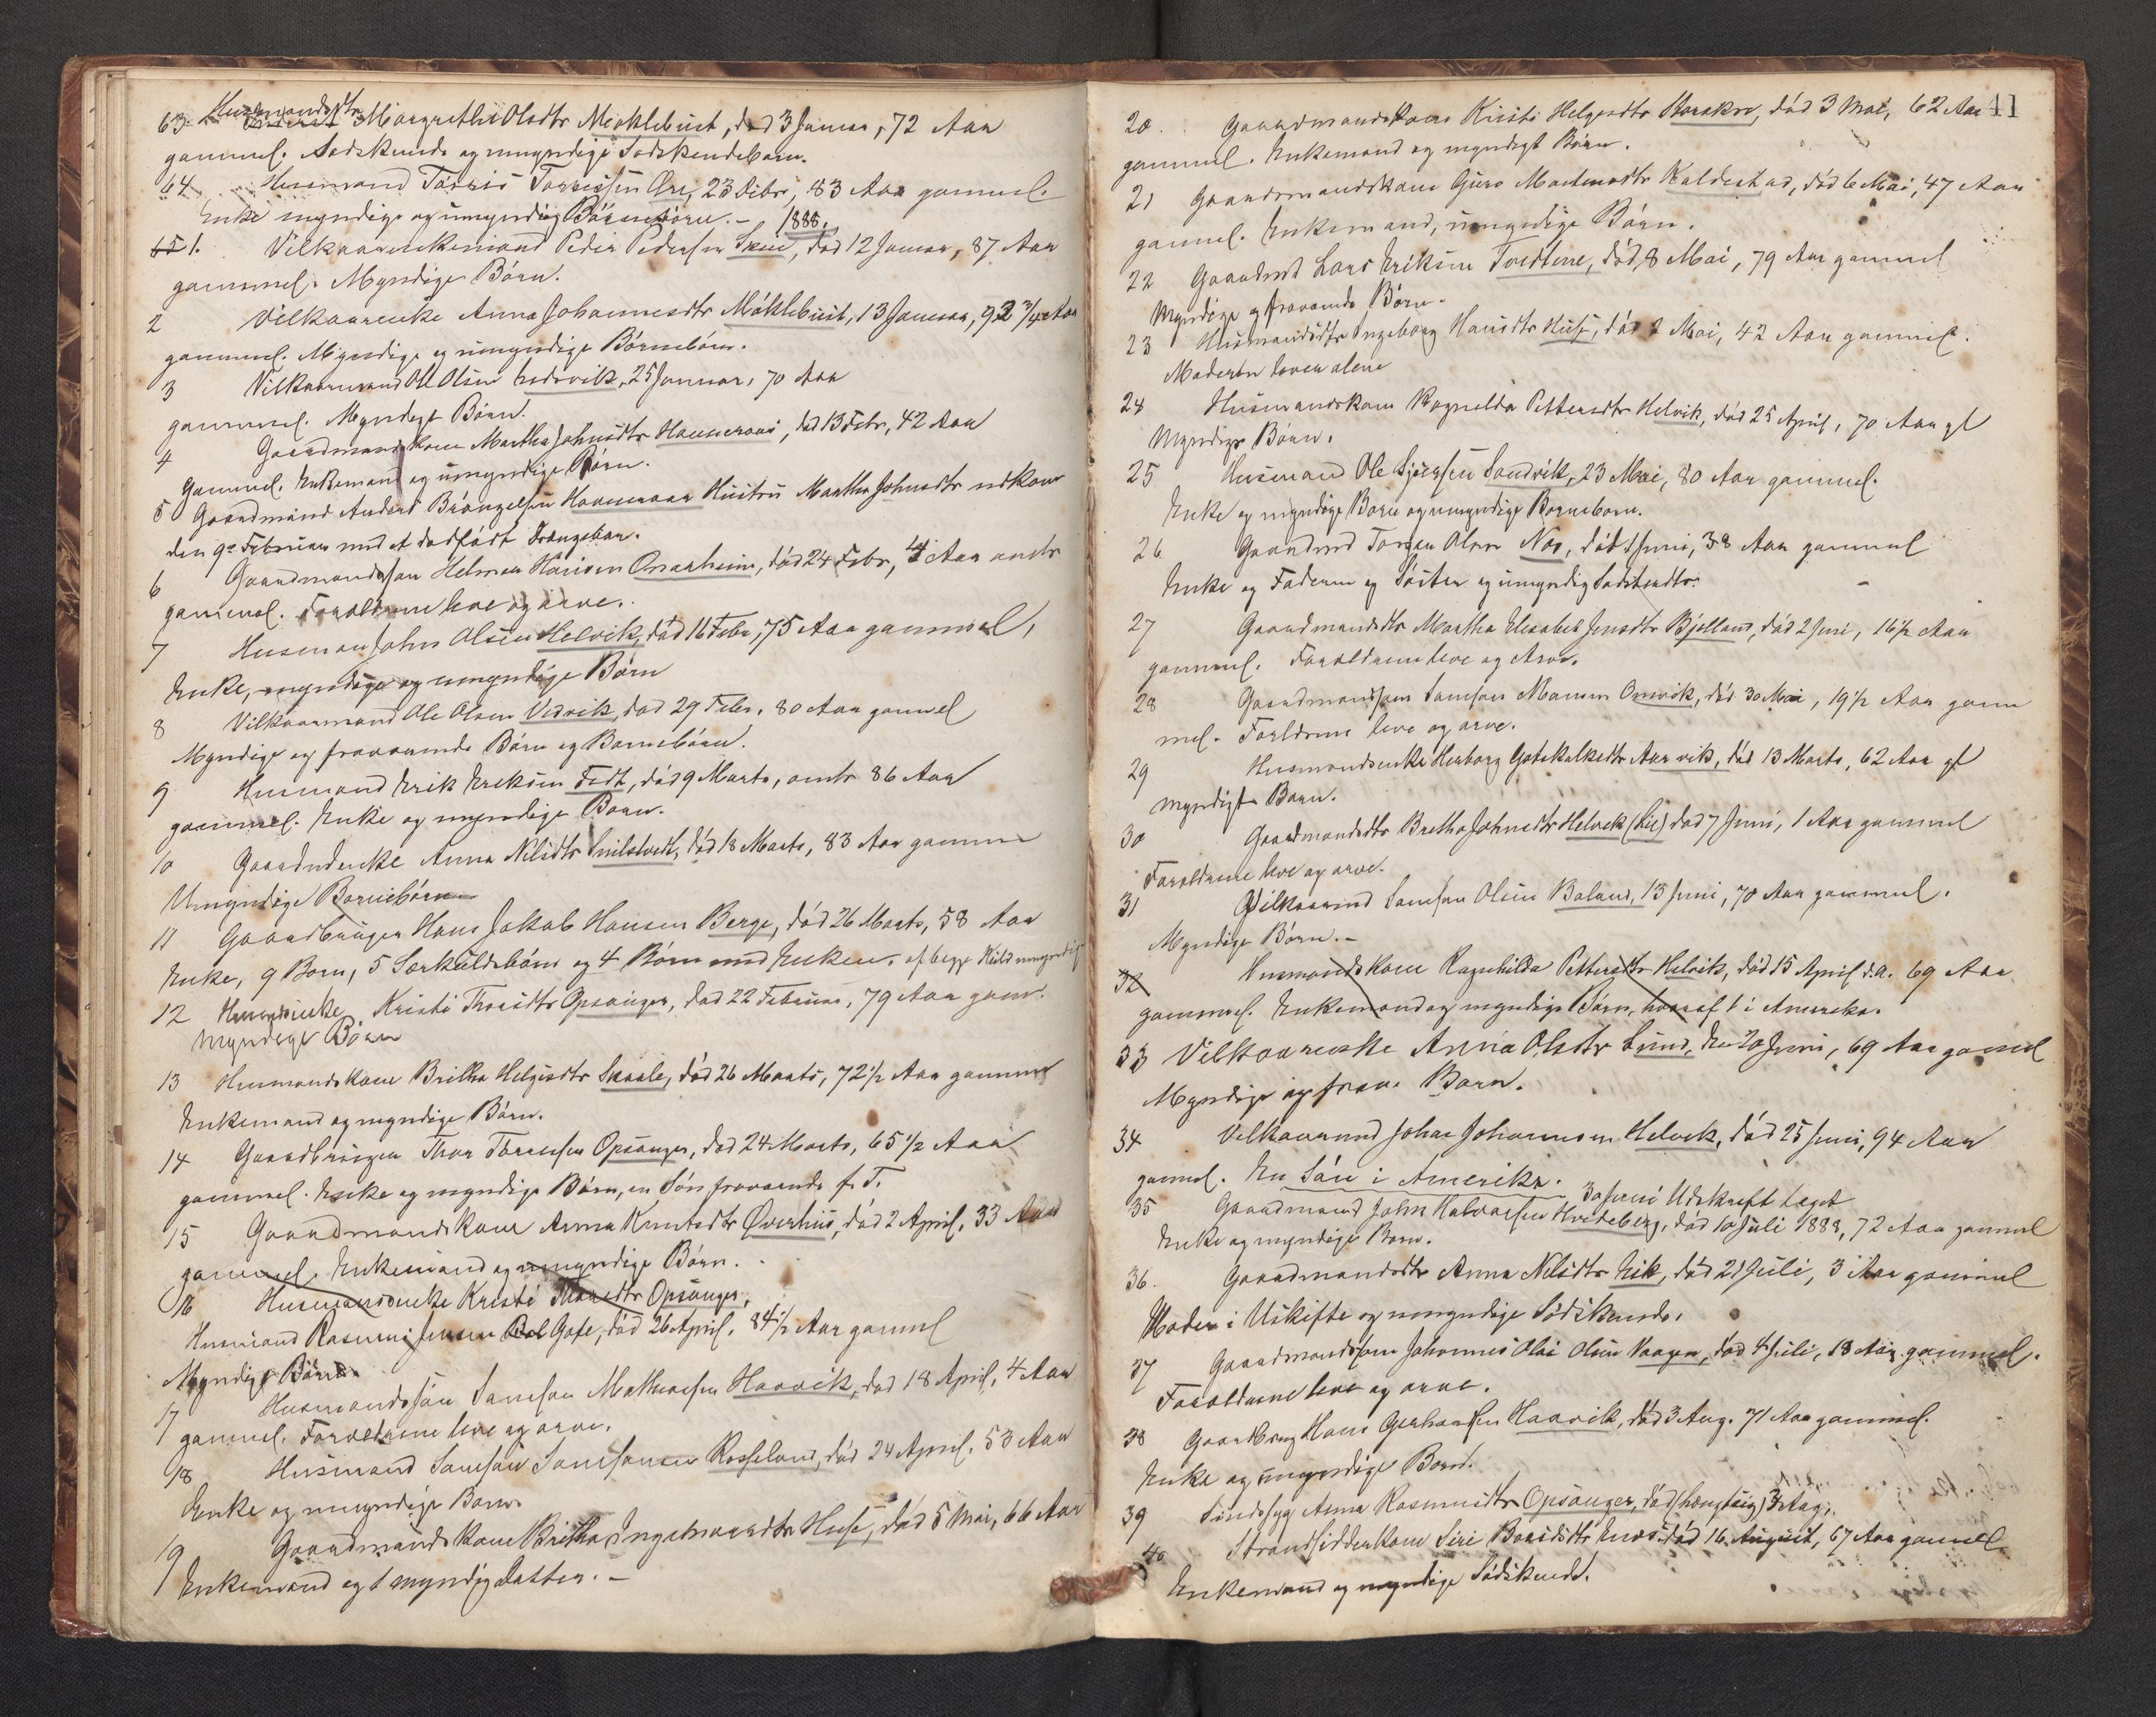 63 Husmandsdtr Margrethe Olsdtr Møklebust, død 3 Januar, 72 Aar
gammel. Sødskende og umyndige Sødskendebørn.
64 Husmand Tørris Tørrissen Øre, 23 Decbr, 83 Aar gammel.
Enke myndige og umyndig Børnebørn. -
1888.
65 1. Vilkaarsenkemand Peder Pedersen Skaae, død 12 Januar, 87 Aar
gammel. Myndige Børn.
2 Vilkaarsenke Anna Johannesdtr Møklebust, 13 Januar, 92 3/4 Aar
gammel. Myndige og umyndige Børnebørn.
3 Vilkaarsmand Ole Olsen Endrevik, 25 Januar, 70 Aar
gammel. Myndige Børn.
4 Gaardmandskone Martha Johnsdtr Hammeraas, død 13 Febr, 42 Aar
gammel. Enkemand og umyndige Børn.
5 Gaardmand Anders Brøngelsen Hammeraas Hustru Martha Johnsdtr nedkom
den 9de Februar med et dødfødt Drengebarn.
6 Gaardmandssøn Helmer Hansen Omarheim, død 24 Febr, 4 Aar omtr
gammel. Forældrene leve og arve.
7 Husmand John Olsen Helvik, død 16 Febr, 75 Aar gammel,
Enke, myndige og umyndige Børn
8 Vilkaarsmand Ole Olsen Vedvik, død 29 Febr. 80 Aar gammel
Myndige og fraværende Børn og Børnebørn.
9 Husmand Erik Eriksen Tedt, død 9 Marts, omtr 86 Aar
gammel. Enke og myndige Børn.
10 Gaardmdenke Anna Nilsdtr Snilstveit, død 18 Marts, 83 Aar gammel
Umyndige Børnebørn
11 Gaardbruger Hans Jakob Hansen Berge, død 26 Marts, 58 Aar
Enke, 9 Børn, 5 Særkuldsbørn og 4 Børn med Enken, af begge Kuld umyndige
12 Husmandsenke Kristi Thorsdtr Opsanger, død 22 Februar, 79 Aar gam.
Myndige Børn
13 Husmandskone Britha Helgesdtr Skaale, død 26 Marts, 72 1/2 Aar gammel
Enkemand og myndige Børn.
14 Gaardbruger Thor Tørressen Opsanger, død 24 Marts, 65 1/2 Aar
gammel. Enke og myndige Børn, en Søn fraværende f. T.
15 Gaardmandskone Anna Knutsdtr Øverhus, død 2 April, 33 Aar
gammel. Enkemand og umyndige Børn.
16 Husmandsenke Kristi Thorsdtr Opsanger,
Husmand Rasmus Jensen Gate, død 26 April, 84 1/2 Aar gammel
Myndige Børn
17 Husmandssøn Samson Mathiassen Haavik, død 18 April, 4 Aar
gammel. Forældrene leve og arve.
18 Husmand Samson Samsonsen Rosseland, død 24 April. 53 Aar
Enke og umyndige Børn
19 Gaardmandskone Britha Ingebrigtsdtr Huse, død 5 Mai, 66 Aar
Enkemand og 1 myndig Datter. -
41
20. Gaardmandskone Kristi Helgesdtr Storakre, død 3 Mai, 62 Aar
gammel. Enkemand og myndige Børn.
21 Gaardmandskone Guro Martinsdtr Kaldestad, død 6 Mai, 47 Aar
gammel. Enkemand, umyndige Børn.
22 Gaardmd Lars Eriksen Tvedtene, død 8 Mai, 79 Aar gammel
Myndige og fraværende Børn.
23 Husmandsdtr Ingeborg Hansdtr Huse, død 2 Mai, 42 Aar gammel.
Moderen lever alene
24 Husmandskone Ragnilda Pettersdtr Helvik, død 25 April, 70 Aar gl
Myndige Børn.
25 Husmand Ole Sjursen Sandvik, 23 Mai, 80 Aar gammel.
Enke og myndige Børn og umyndige Børnebørn.
26 Gaardmd Torger Olsen Næs, død 1 Juni, 38 Aar gammel
Enke og Faderen og Søster og umyndig Sødskendbr.
27 Gaardmandsdtr Martha Elesabet Jensdtr Bjelland, død 2 Juni, 16 1/2 Aar
gammel. Forældrene leve og Arve.
28 Gaardmandssøn Samson Monsen Omvik, død 30 Mai, 19 1/2 Aar gam
mel. Forældrene leve og arve.
29 Husmandsenke Herborg Gotskalksdtr Aarvik, død 13 Marts, 62 Aar gl
myndige Børn.
30 Gaardmandsdtr Bretha Johnsdtr Helvik (Lie) død 7 Juni, 1 Aar gammel
Forældrene leve og arve.
31 Vilkaarsmd Samson Olsen Baland, 13 Juni, 70 Aar gammel.
Myndige Børn. -
32 Husmandskone Ragnhilda Pettersdtr Helvik, død 15 April d.A. 69 Aar
gammel. Enkemand og myndige Børn, hvoraf 1 i Amerika.
33 Vilkaarsenke Anna Olsdtr Lund, den 20 Juni, 69 Aar gammel
Myndige og frav. Børn.
34 Vilkaarsmd Johan Johannesen Helvik, død 25 Juni, 94 Aar
gammel. En Søn i Amerika.
30 Juni Udskrift taget
35 Gaardmand John Halvorsen Hvideberg, død 10 Juli 1888, 72 Aar gammel
Enke og myndige Børn.
36. Gaardmandsdtr Anna Nilsdtr Eik, død 21 Juli, 3 Aar gammel
Moder i Uskifte og umyndige Sødskende.
37 Gaardmandssøn Johannes Olai Olsen Vaagen, død 4 Juli, 18 Aar gammel.
Forældrene leve og arve.
38 Gaardbrug Hans Gerhardsen Haavik, død 3 Aug. 71 Aar gammel.
Enke og umyndige Børn.
39 Sindssyg Anna Rasmusdtr Opsanger, død (hængt sig) 3 Aug.
40 Strandsidderkone Siri Baardsdtr død 16 August, 67 Aar gammel
Enkemand og myndige Sødskende.